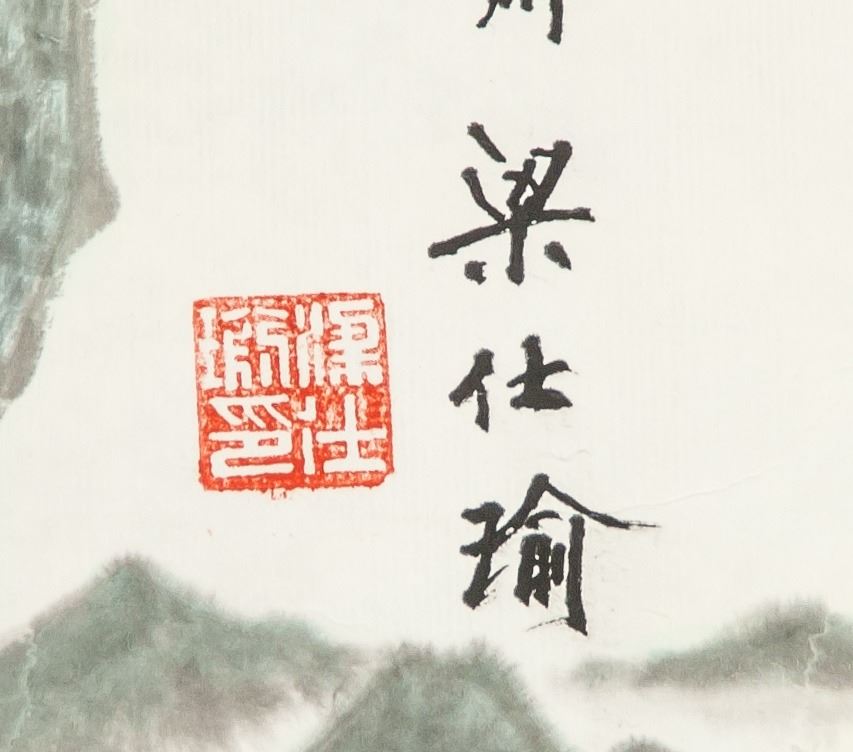 梁仕瑜
梁仕
瑜印